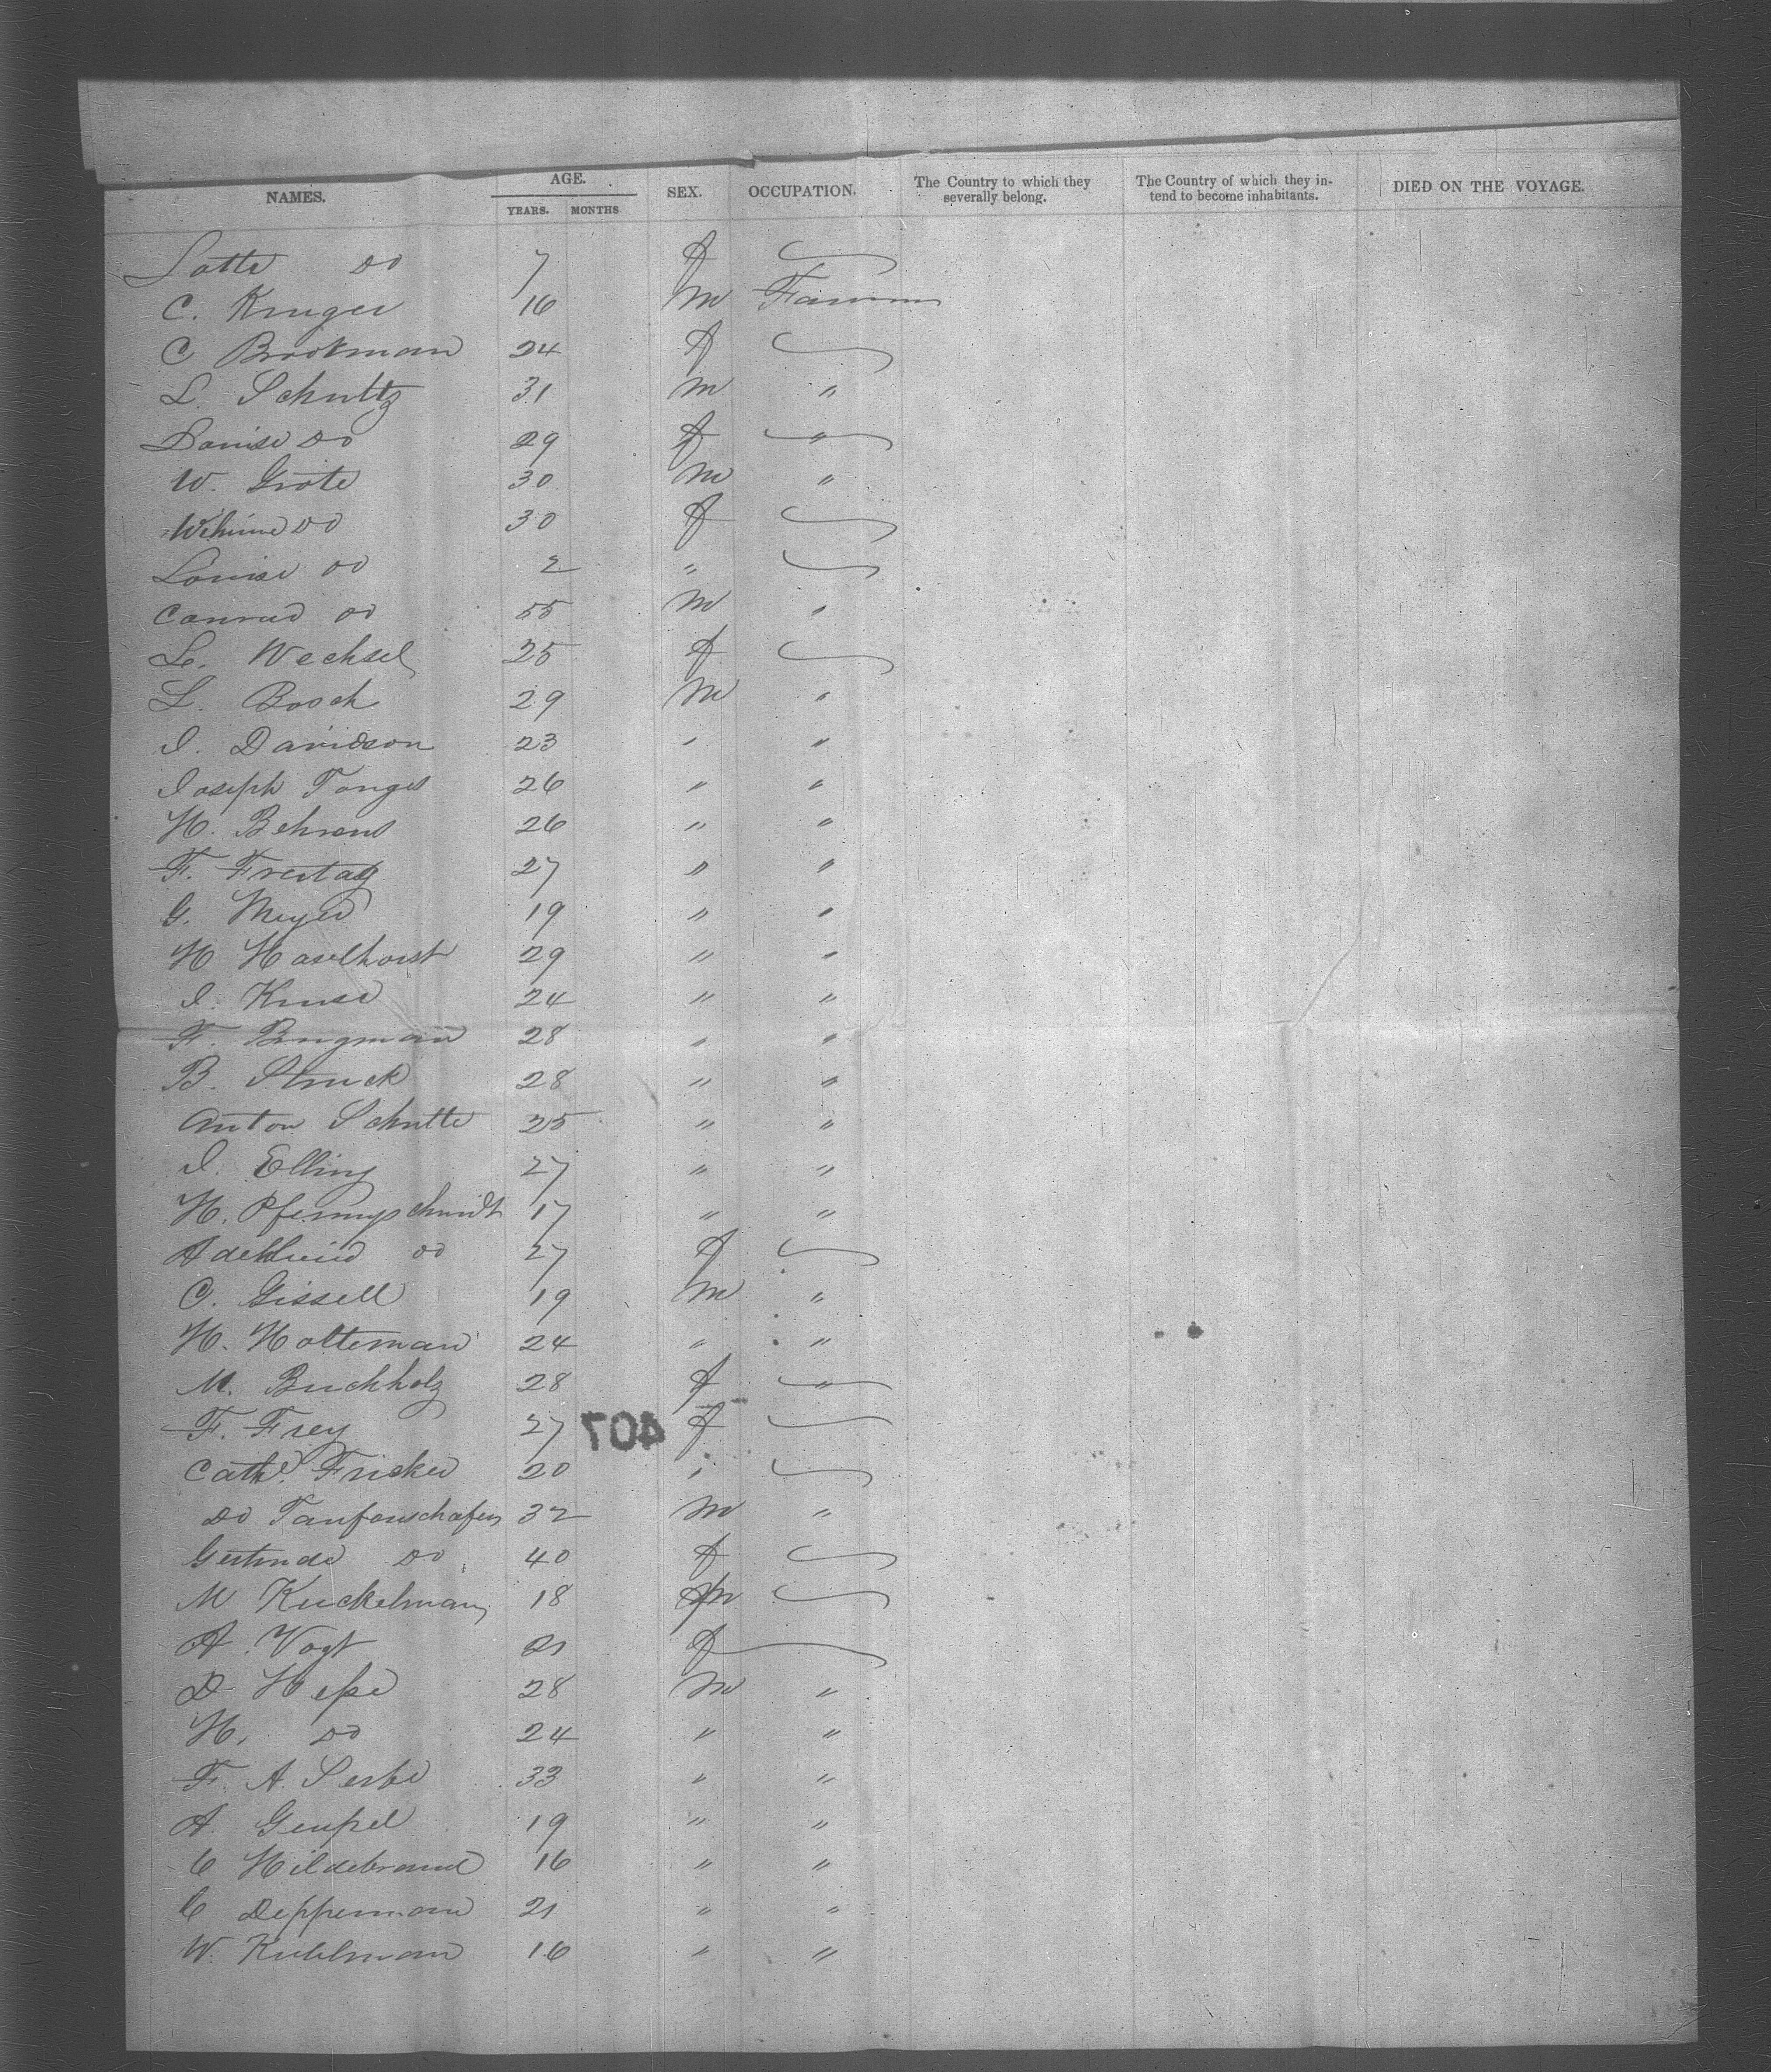 NAMES. AGE. SEX. OCCUPATION. The Country to which they severally belong. The Country of which they intend to become inhabitants. DIED ON THE VOYAGE.
YEARS. MONTHS
Lotte Do 7 f
C. Kruger 16 m Farmer
C Brokman 24 f
L. Schultz 31 m "
Louise Do 29 f "
W. Grote 30 m "
Do 30 f
Louise Do 2 "
Conrad Do 55 m "
Le. Wechsel 25 f
L. Bosch 29 m "
I. Davidson 23 " "
Joseph Tonges 26 " "
H. Behrens 26 " "
F. Freitag 27 " "
G. Meyer 19 " "
H Haselhorst 29 " "
I. Kruse 24 " "
F. Brugman 28 " "
B. Struck 28 " "
Anton Schutte 25 " "
I. Elling 27 " "
H. 17 " "
Do 27 f
C. Gissell 19 m "
H. Holteman 24 " "
M. Buchholz 28 f "
F. Frey 27 f
407
Cathe. Fricker 20 "
Do 32 m "
Gertrude Do 40 f
M Kuckelman 18 m
A. Vogt 21 f
D Hesse 28 m "
H. Do 24 " "
F. A. 33 " "
A. Geupel 19 " "
C Hildebrand 16 " "
C Depperman 21 " "
W. Kuhlman 16 " "